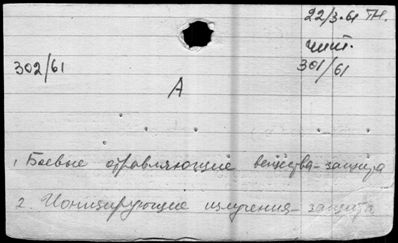 22/3-61 ТН.
чит.
302/61
301/61
А
1. Боевые отравляющие вещества-защита
2. Ионизирующие излучения-защита